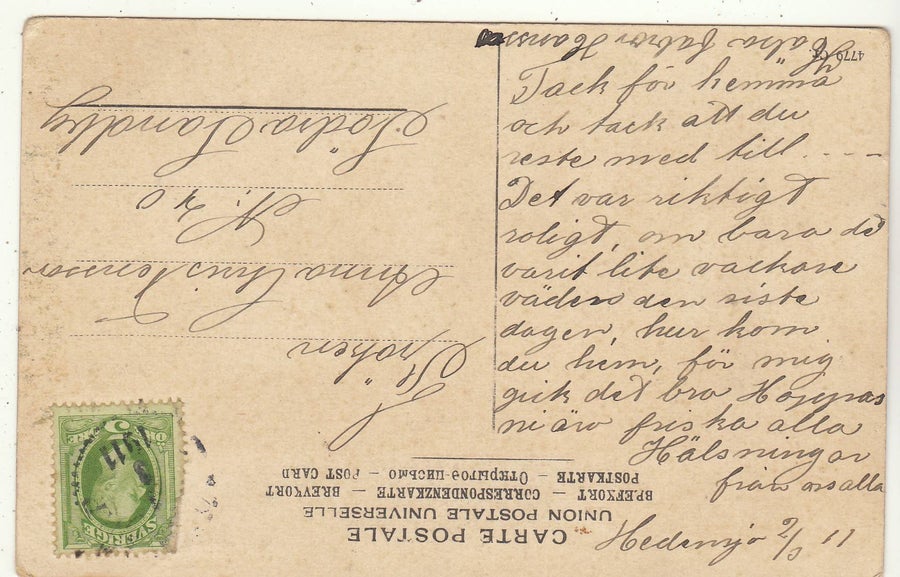 Tack för hemma
och tack att du
reste med till ....
Det var riktigt
roligt, om bara det
varit lite vackare
väder den siste
dagen, hur kom
du hem, för mig
gick det bra Hoppas
ni äro friska alla
Hälsningar
från oss alla
Hedensjö 2/5 11
CARTE POSTALE
UNION POSTALE UNIVERSELLE
BREFKORT – CORRESPONDENZKARTE – BREVKORT
POSTKARTE – ОТКРЫТОЕ ПИСЬМО – POST CARD
Fröken
Anna Christensson
N: 40
Södra Sandby
4779
SVERIGE
5
ÖRE
1911